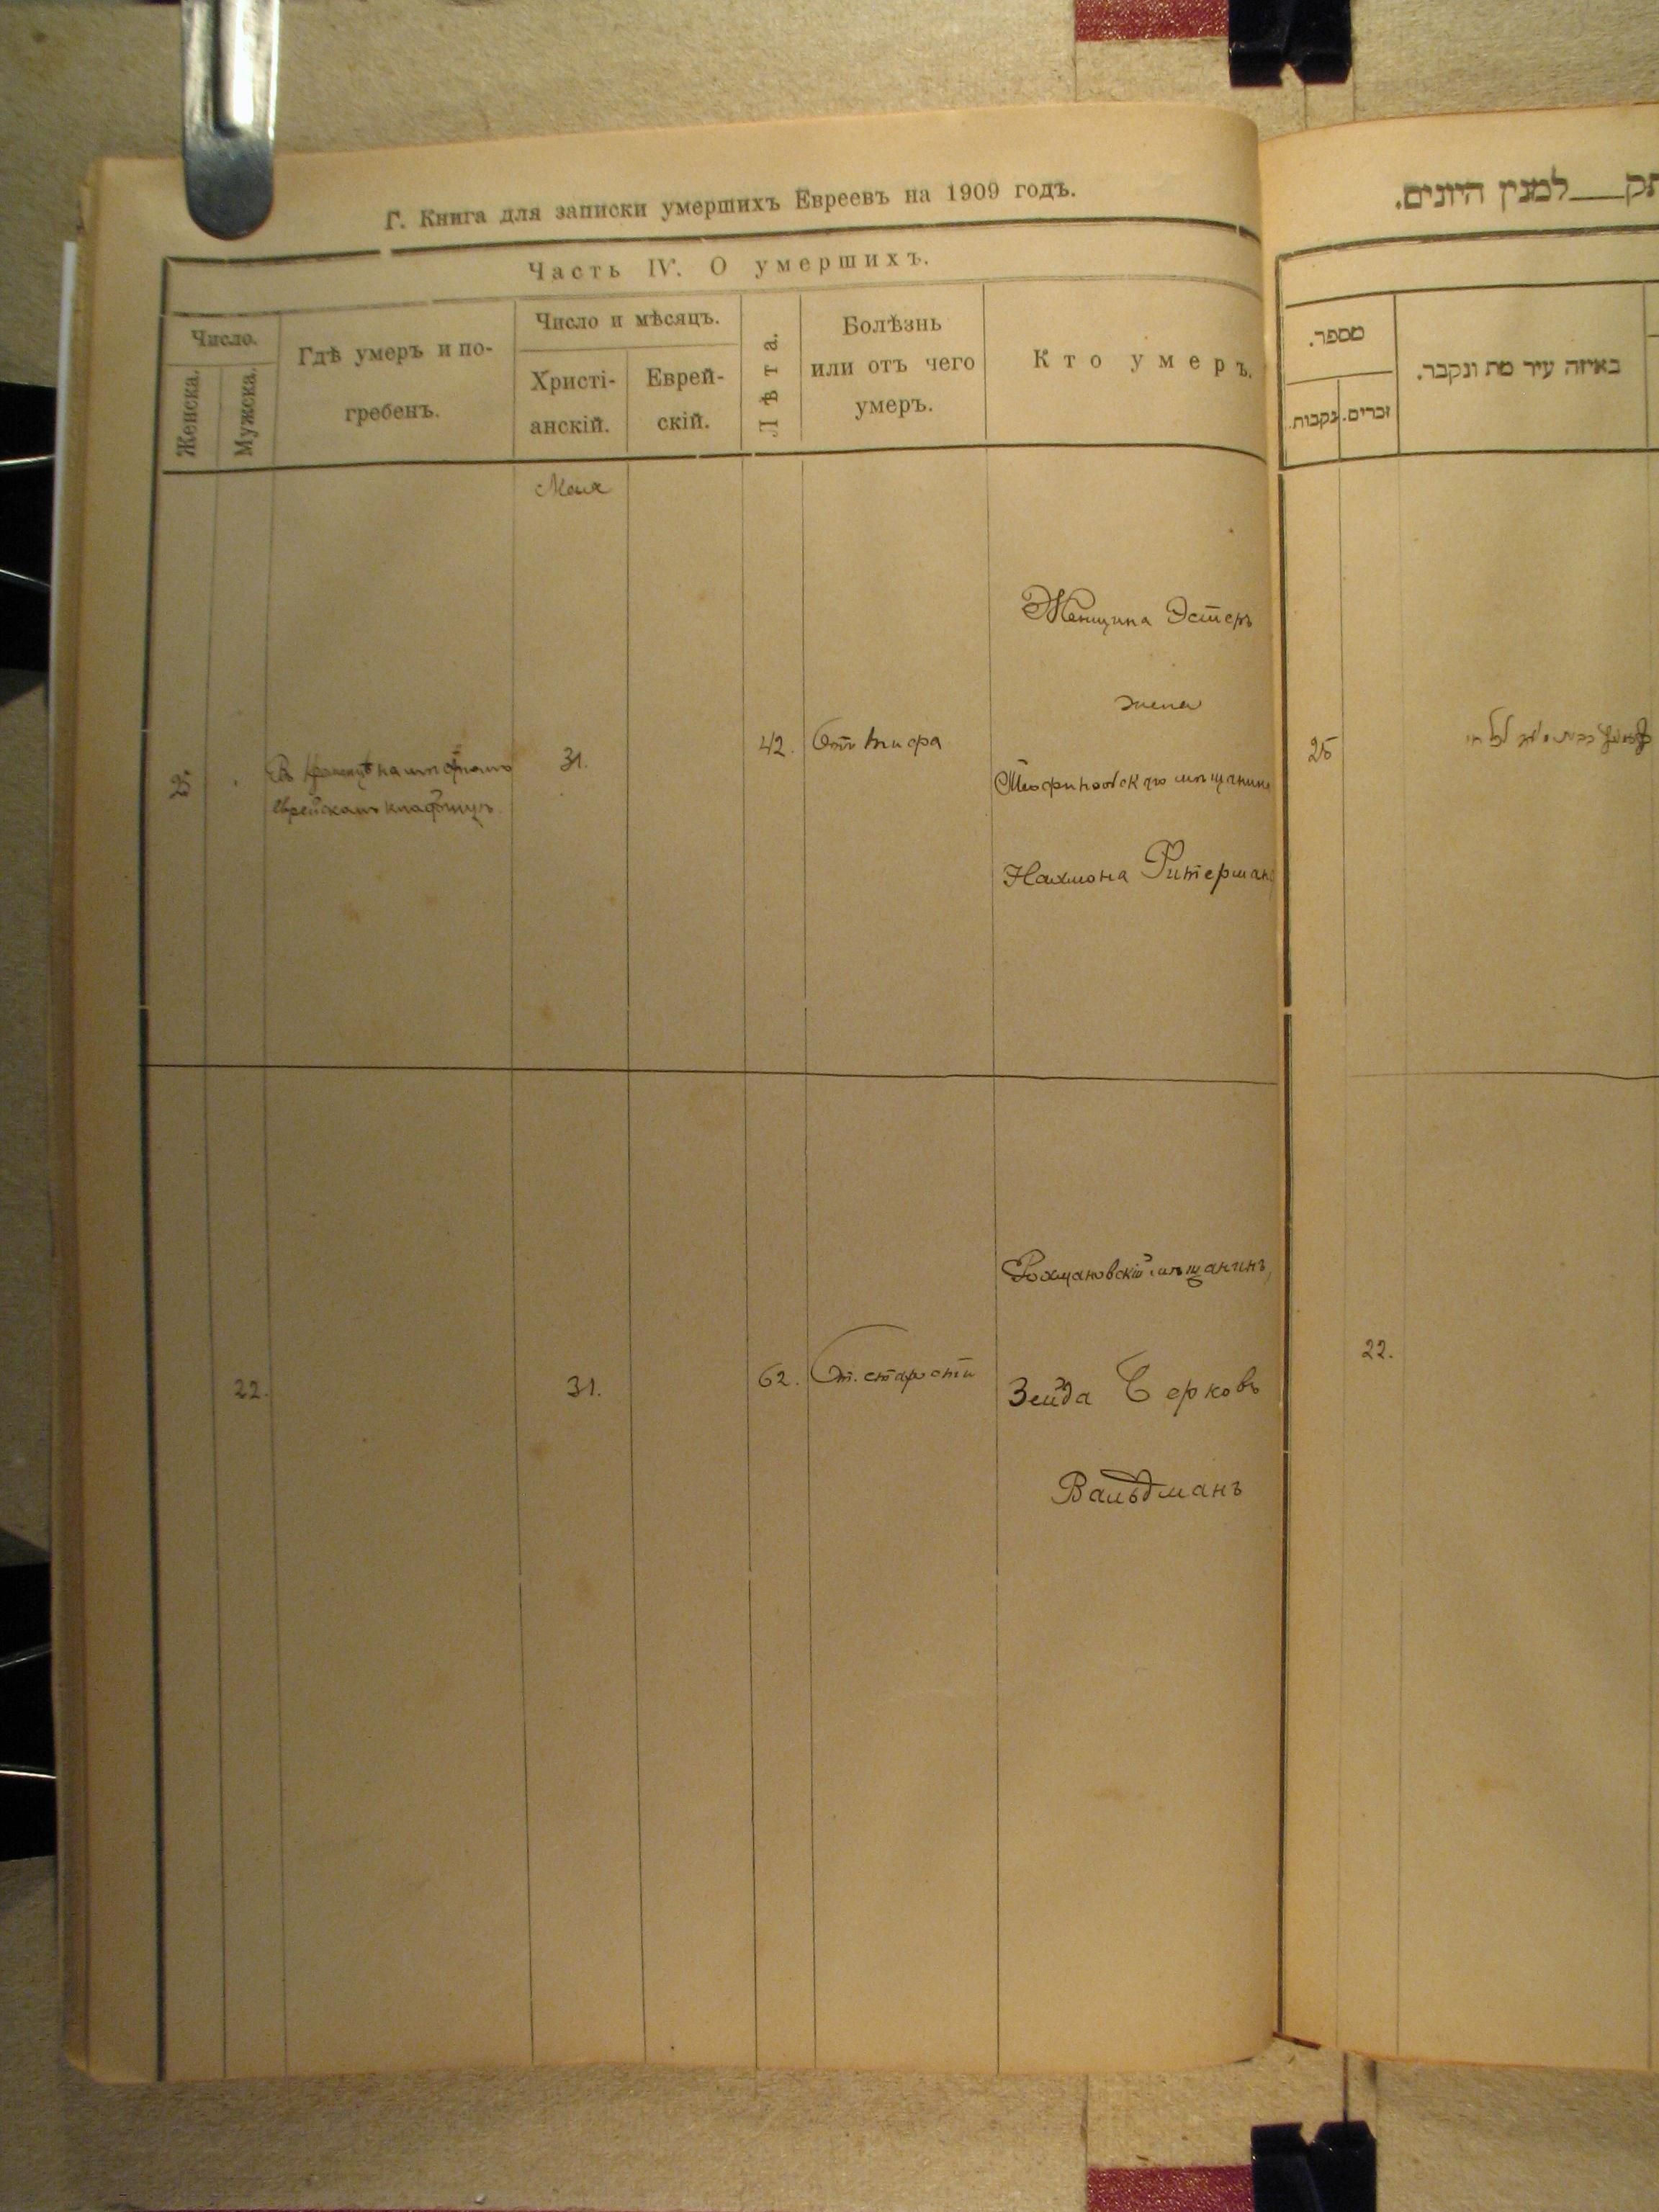 Г. Книга для записки умершихъ Евреевъ на 1909 годъ.
Часть IV. О умершихъ.
Число.
Женска.
Мужска.
Гдѣ умеръ и по-
гребенъ.
Число и мѣсяцъ.
Христі-
анскій.
Еврей-
скій.
Лѣта.
Болѣзнь
или отъ чего
умеръ.
Кто умеръ.
Мая
25
Въ Кременцѣ на мѣстномъ
еврейскомъ кладбищѣ.
31.
42.
Отъ тифа
Женщина Эстеръ
жена
мѣщанина
Нахмона Ритермана
22.
31.
62.
От. старости
Рохмановскій мѣщанинъ,
Зейда Берковъ
Вальдманъ
למנין היונים.
מספר.
נקבות.
זכרים.
באיזה עיר מת ונקבר.
25
22.